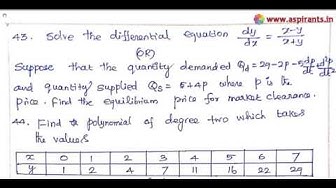 www.aspirants.in
43. Solve the differential equation dy/dx = x-y/x+y
(OR)
Suppose that the quantity demanded Qd = 29-2p-5 dp/dt + d²p/dt²
and quantity supplied Qs = 5+4p where p is the
price. Find the equilibrium price for market clearance.
44. Find a polynomial of degree two which takes
the values
x 0 1 2 3 4 5 6 7
y 1 2 4 7 11 16 22 29